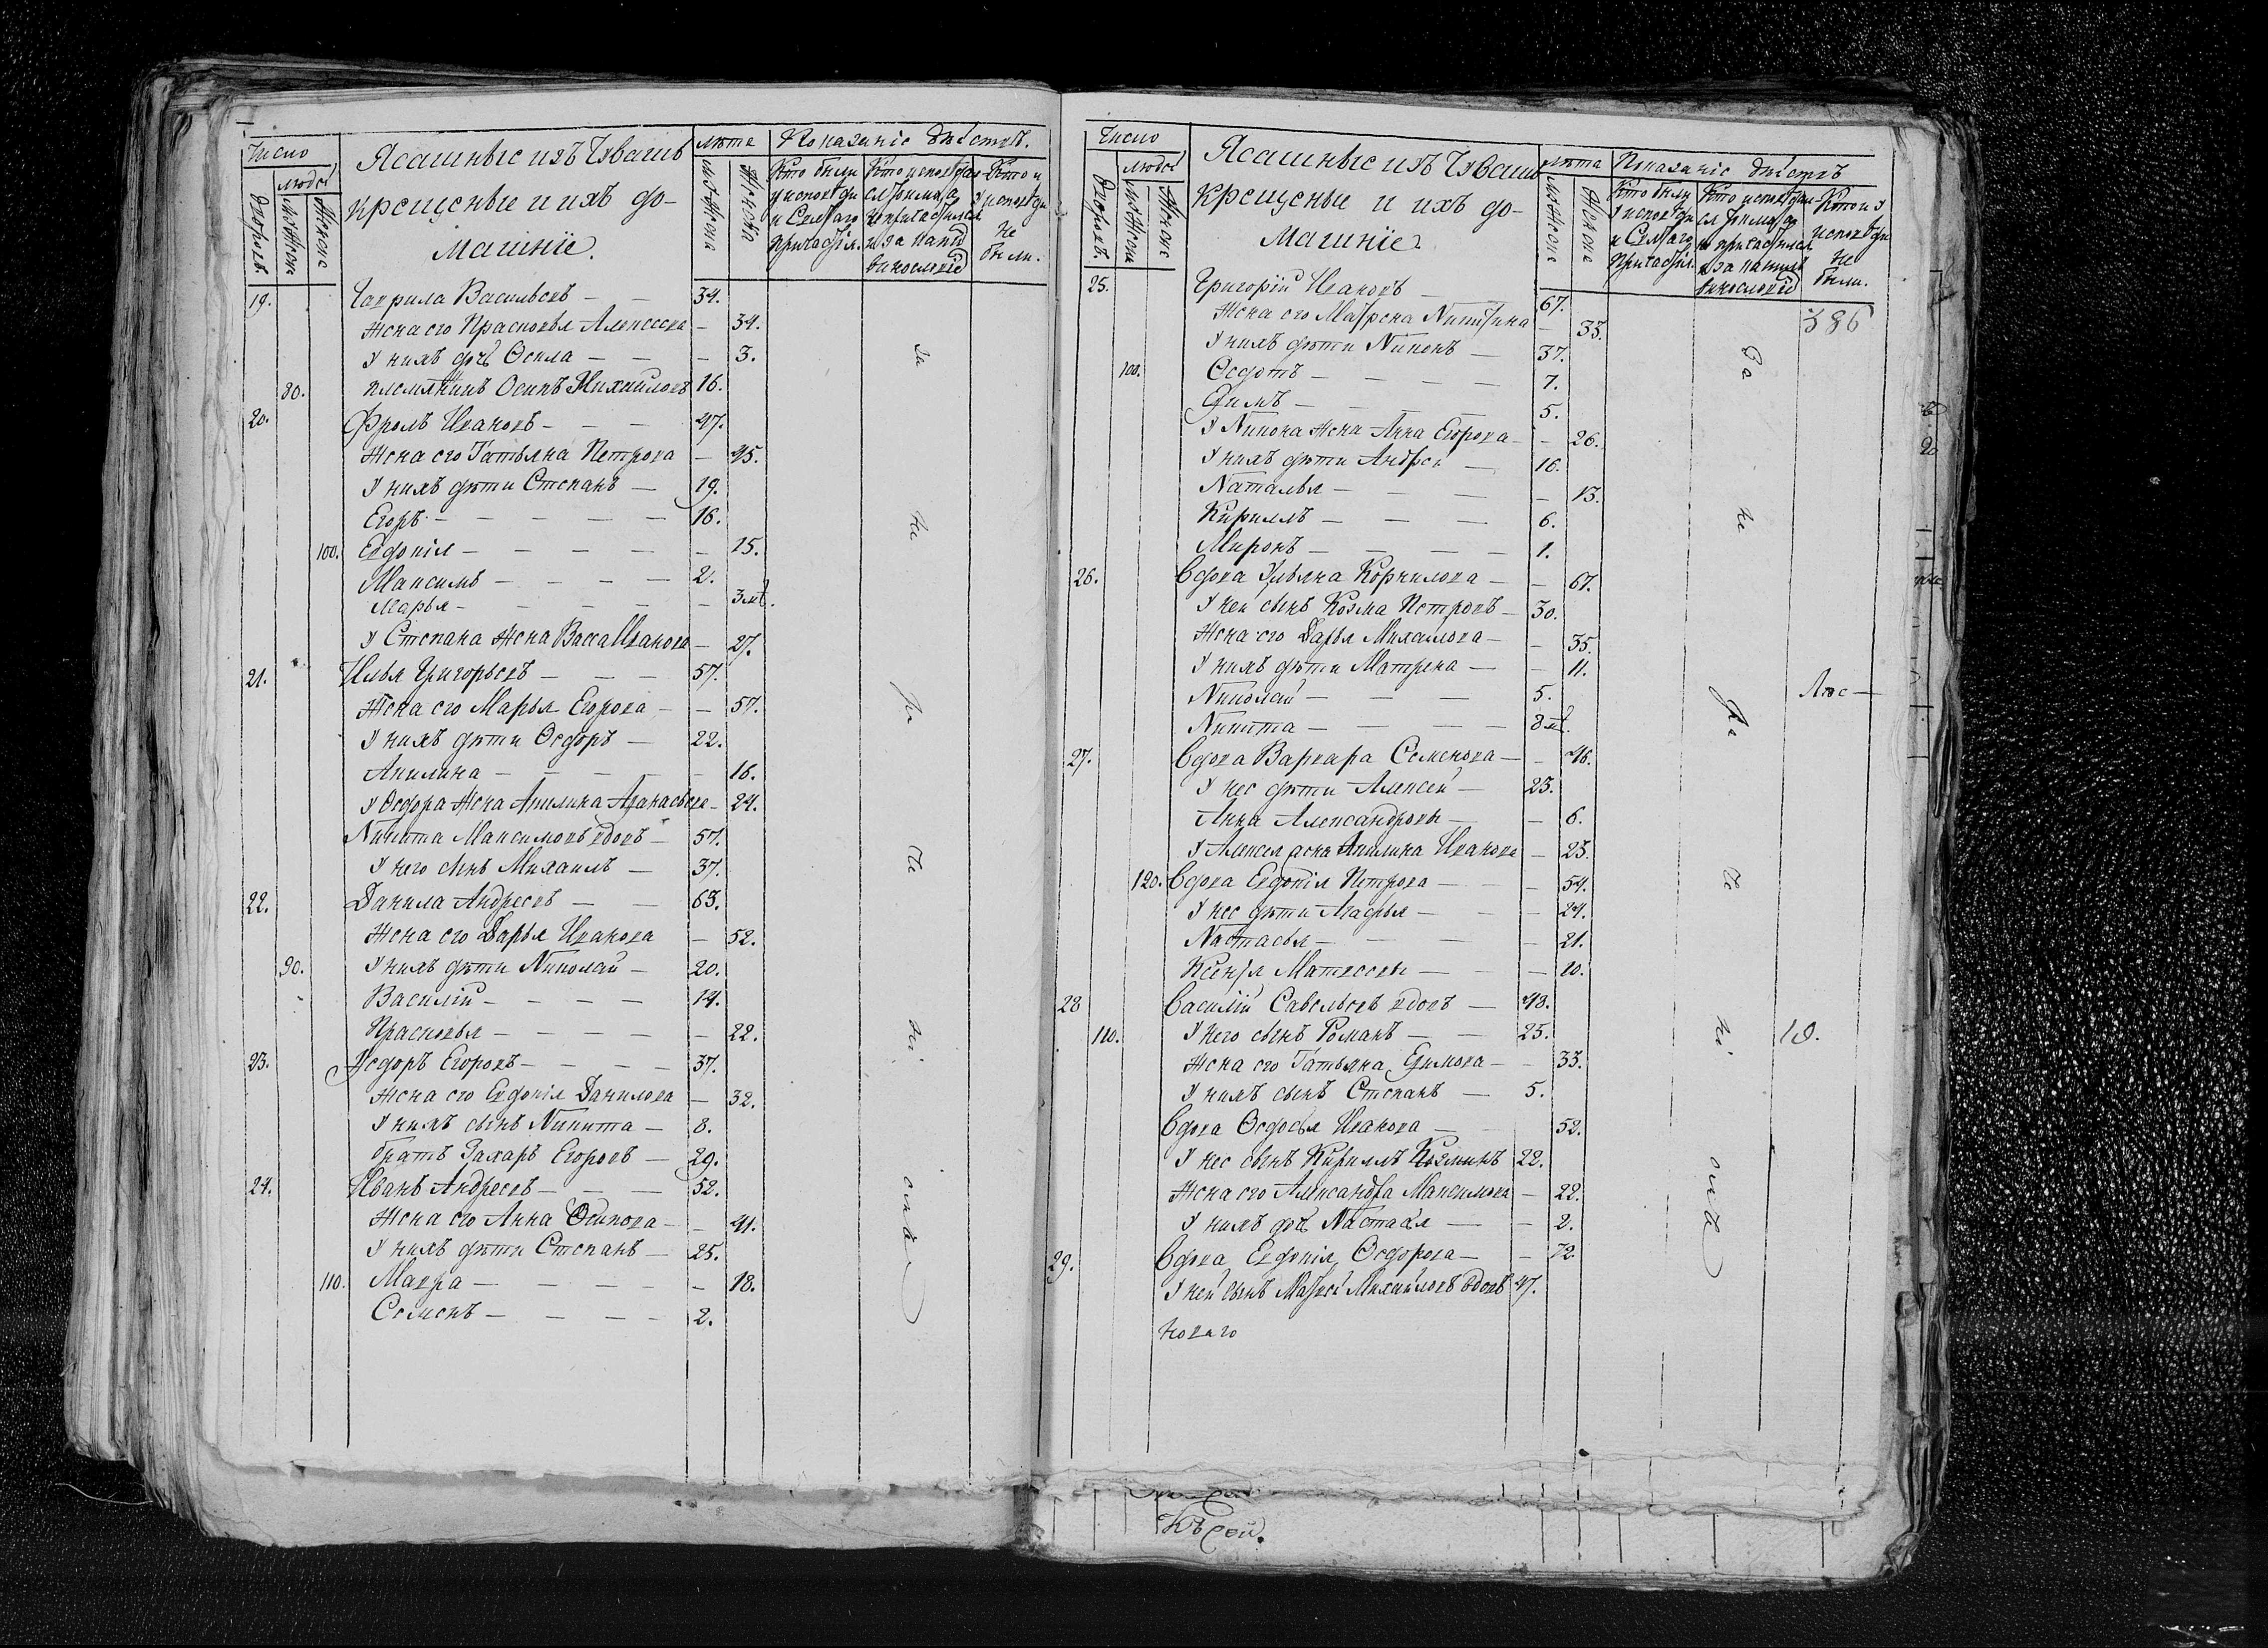 Число
людей
Дворовъ.
Мужска
Женска
Ясашные изъ Чювашъ
крещеные и ихъ до-
машнїе.
Лѣта
Мужска
Женска
Показанїе дѣйствъ.
Кто были
у исповѣди
и Святаго
причастїя.
Кто исповѣда-
лся токмо, а
не причастился
и за какимъ
винословіемъ
Кто и
у исповѣди
не
были.
19. Гаврила Васильевъ — — 34.
Жена его Прасковья Алексеева — 34.
У нихъ дочь Фекла — — — 3.
80. племянникъ Осипъ Михайловъ 16.
20. Фролъ Ивановъ — — — 47.
Жена его Татьяна Петрова — 45.
У нихъ дѣти Степанъ — 19.
Егоръ — — — — — 16.
100. Евдокія — — — — — 15.
Максимъ — — — — 2.
Марья — — — — — 3 мѣ.
У Степана жена Васса Иванова — 27.
21. Илья Григорьевъ — — — 57.
Жена его Марья Егорова — — 57.
У нихъ дѣти Ѳедоръ — 22.
Акилина — — — — — 16.
У Ѳедора жена Акилина Аѳанасьева — 24.
Никита Максимовъ вдовъ — 57.
У него сынъ Михаилъ — 37.
22. Данила Андреевъ — — 63.
Жена его Дарья Иванова — 52.
90. У нихъ дѣти Николай — 20.
Василій — — — — 14.
Прасковья — — — — — 22.
23. Ѳедоръ Егоровъ — — — — 37.
Жена его Евдокія Данилова — 32.
У нихъ сынъ Никита — 8.
братъ Захаръ Егоровъ — 29.
24. Иванъ Андреевъ — — — 52.
Жена его Анна Осипова — — 41.
У нихъ дѣти Степанъ — 25.
110. Мавра — — — — — 18.
Семенъ — — — — 2.
За
не
ра
че
ні
емъ
Число
людей
Дворовъ.
Мужска
Женска
Ясашные изъ Чюваш
крещеные и ихъ до-
машнїе.
Лѣта
Мужска
Женска
Показанїе дѣйствъ
Кто были
у исповѣди
и Святаго
причастїя.
Кто исповѣда-
лся токмо, а
не причастился
и за какимъ
винословіемъ
Кто и у
исповѣди
не
были.
386
25. Григорїй Ивановъ — 67.
Жена его Матрена Никитина — 33.
У нихъ дѣти Никонъ — 37.
100. Ѳедотъ — — — — 7.
— — — 5.
У Никона жена Анна Егорова — — 26.
У нихъ дѣти Андрей — 16.
Наталья — — — — 13.
Кириллъ — — — 6.
Миронъ — — — — 1.
26. Вдова Ульяна Корнилова — — 67.
У ней сынъ Козма Петровъ — 30.
Жена его Дарья Михайлова — — 35.
У нихъ дѣти Матрена — — 11.
Николай — — — 5.
Никита — — — — 8 мѣ.
27. Вдова Варвара Семенова — — 46.
У нее дѣти Алексей — 23.
Анна Александровы — — 6.
У Алексея жена Акилина Иванова — 23.
120. Вдова Евдокія Петрова — — — 54.
У нее дѣти Агафья — — — 24.
Настасья — — — — 21.
Ксенїя Матвеевы — — — 10.
28 Василїй Савельевъ вдовъ — 48.
110. У него сынъ Романъ — — 25.
Жена его Татьяна Ефимова — — 33.
У нихъ сынъ Степанъ — 5.
Вдова Ѳедосья Иванова — — 52.
У нее сынъ Кириллъ Козминъ 22.
Жена его Александра Максимова — 22.
У нихъ дочь Настасья — — 2.
29. Вдова Евдокія Ѳедорова — — 72.
У ней сынъ Матвей Михайловъ вдовъ 47.
За
не
ра
че
ні
емъ